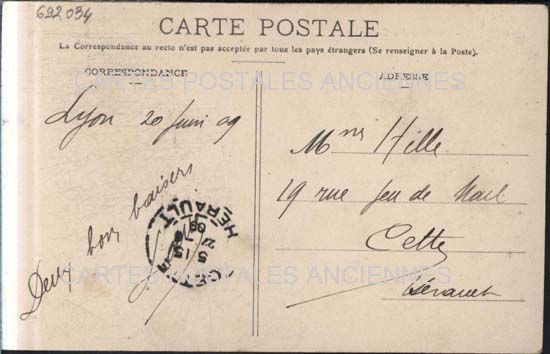 692 034
CARTE POSTALE
La Correspondance au recto n'est pas acceptée par tous les pays étrangers (Se renseigner à la Poste).
CORRESPONDANCE
ADRESSE
CARTES POSTALES ANCIENNES
Lyon 20 Juin 09
Deux bons baisers
CETTE
HÉRAULT
Mme Hille
19 rue Jeu de Mail
Cette
Hérault
CARTES POSTALES ANCIENNES